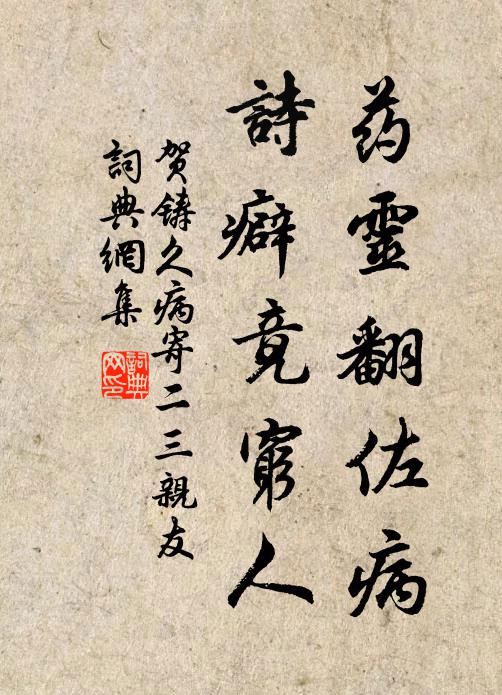 药靈翻佐病
詩癖竟窮人
贺鑄久病寄二三親友
詞典網集
詞典网印